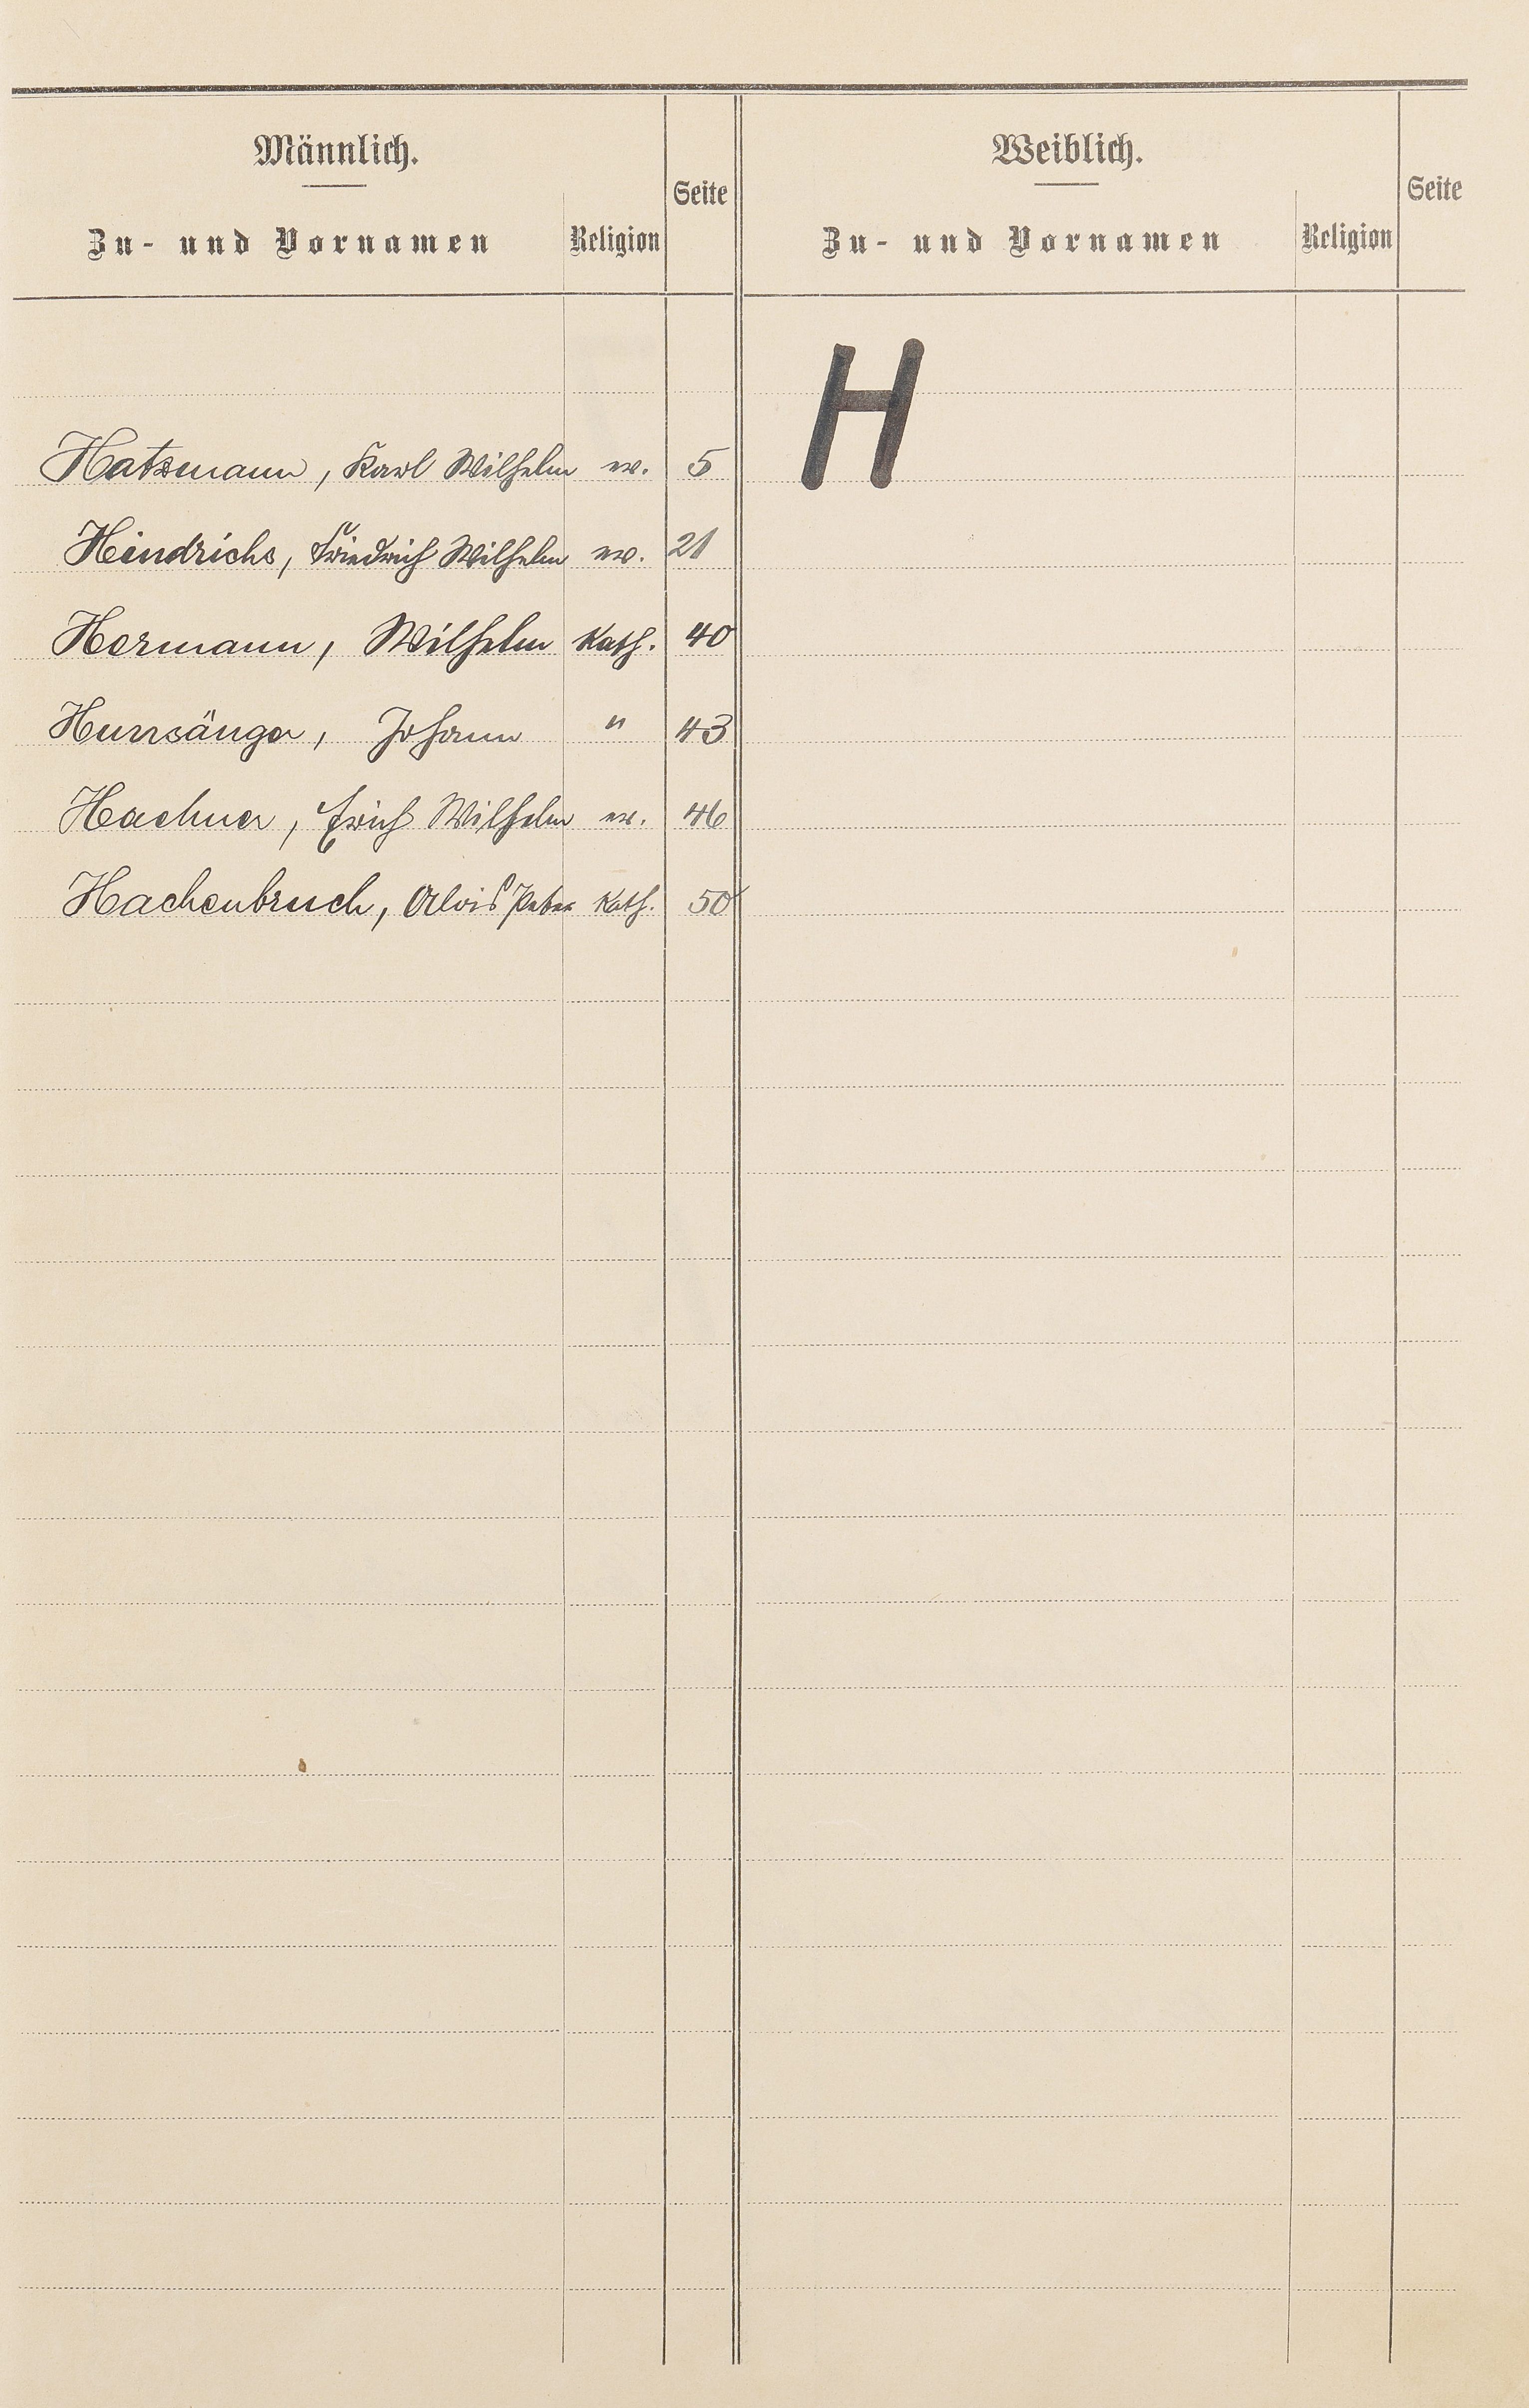 Männlich.
Zu- und Vornamen Religion Seite
Weiblich.
Zu- und Vornamen Religion Seite
H
Hatzmann, Karl Wilhelm ev. 5
Heindrichs, Friedrich Wilhelm ev. 21
Hermann, Wilhelm Kath. 40
Hunsänger, Johann " 43
Haehner, Erich Wilhelm ev. 46
Hachenbruch, Alois Peter Kath. 50